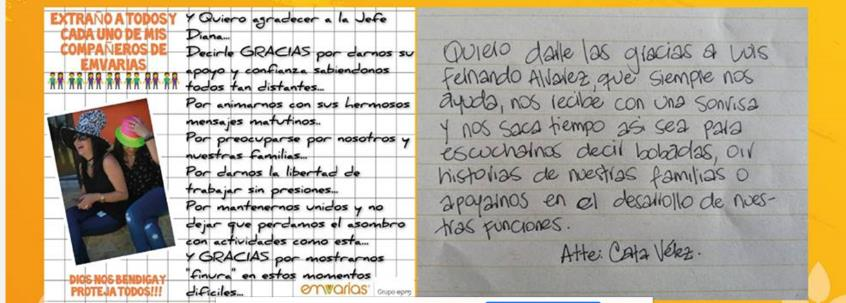 EXTRAÑO A TODOS Y
CADA UNO DE MIS
COMPAÑEROS DE
EMVARIAS
DIOS NOS BENDIGA Y
PROTEJA TODOS!!!
Y Quiero agradecer a la Jefe
Diana...
Decirle GRACIAS por darnos su
apoyo y confianza sabiendonos
todos tan distantes...
Por animarnos con sus hermosos
mensajes matutinos..
Por preocuparse por nosotros y
nuestras familias...
Por darnos la libertad de
trabajar sin presiones...
Por mantenernos unidos y no
dejar que perdamos el asombro
con actividades como esta...
Y GRACIAS por mostrarnos
"finura" en estos momentos
dificiles...
emvarias Grupo epm
Quiero darle las gracias a Luis
Fernando Alvarez, que siempre nos
ayuda, nos recibe con una sonrisa
y nos saca tiempo asi sea para
escucharnos decir bobadas, oir
historias de nuestras familias o
apoyarnos en el desarrollo de nues-
tras funciones.
Atte: Cata Vélez.